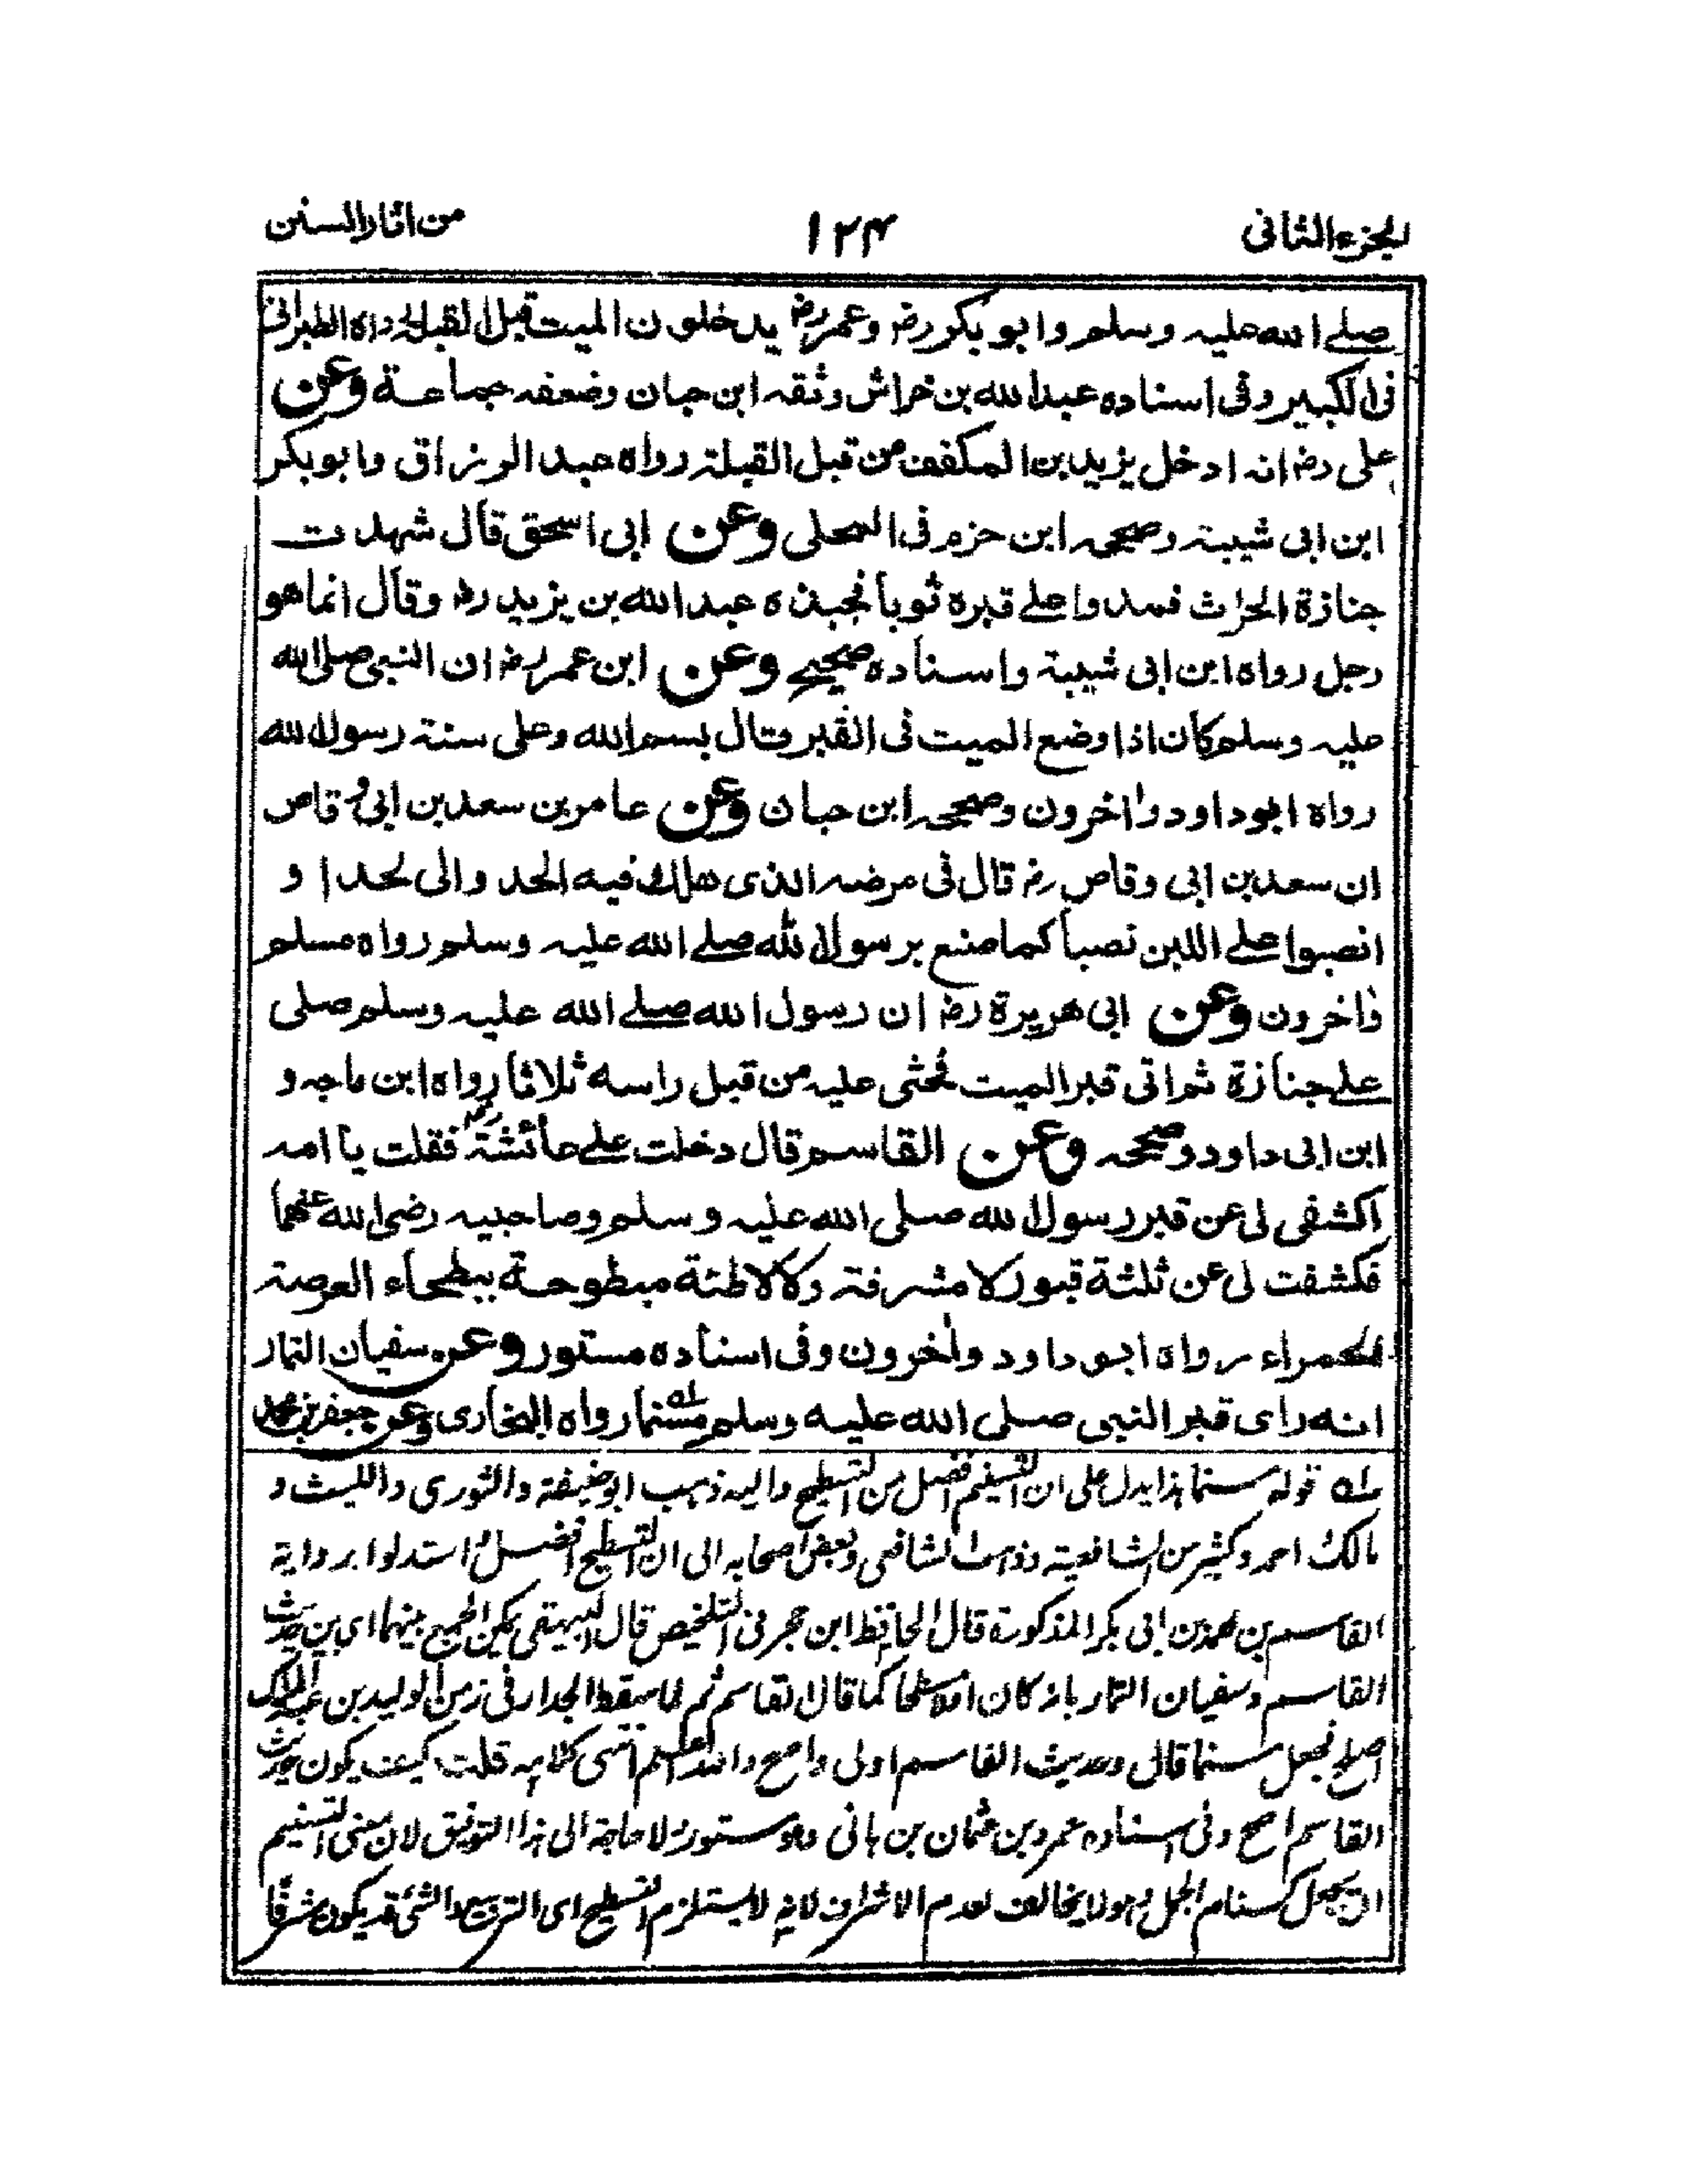 الجزء الثانی ۱۲۴ من اثار السنن
صلے اللہ علیہ وسلم وابو بکر رضہ وعمر رضہ یدخلون المیت قبل القبلۃ رواہ الطبرانی
فی الکبیر وفی اسنادہ عبد اللہ بن خراش وثقہ ابن حبان وضعفہ جماعۃ وعن
علی رضہ انہ ادخل یزید بن المکفف من قبل القبلۃ رواہ عبد الرزاق وابو بکر
ابن ابی شیبۃ وصححہ ابن حزم فی المحلی وعن ابی اسحق قال شہدت
جنازۃ الحرث فمدوا علے قبرہ ثوبا فجبذہ عبد اللہ بن یزید رضہ وقال انما ھو
رجل رواہ ابن ابی شیبۃ واسنادہ صحیح وعن ابن عمر رضہ ان النبی صلی اللہ
علیہ وسلم کان اذا وضع المیت فی القبر قال بسم اللہ وعلی سنۃ رسول اللہ
رواہ ابو داود واٰخرون وصححہ ابن حبان وعن عامر بن سعد بن ابی وقاص
ان سعد بن ابی وقاص رضہ قال فی مرضہ الذی ھلک فیہ الحد والی لحدا و
انصبوا علے اللبن نصبا کما صنع برسول اللہ صلے اللہ علیہ وسلم رواہ مسلم
واٰخرون وعن ابی ھریرۃ رضہ ان رسول اللہ صلے اللہ علیہ وسلم صلی
علے جنازۃ ثم اتی قبر المیت فحثی علیہ من قبل راسہ ثلاثا رواہ ابن ماجہ و
ابن ابی داود وصححہ وعن القاسم قال دخلت علے عائشۃ رضہ فقلت یا امہ
اکشفی لی عن قبر رسول اللہ صلی اللہ علیہ وسلم وصاحبیہ رضی اللہ عنھما
فکشفت لی عن ثلثۃ قبور لا مشرفۃ ولا لاطئۃ مبطوحۃ ببطحاء العرصۃ
الحمراء رواہ ابو داود واٰخرون وفی اسنادہ مستور وعن سفیان التمار
انہ رای قبر النبی صلی اللہ علیہ وسلم مسنما رواہ البخاری وعن جعفر بن محمد
لہ قولہ مسنما ہذا یدل علی ان التسنیم افضل من التسطیح والیہ ذہب ابو حنیفۃ والثوری واللیث و
مالک احمد وکثیر من الشافعیۃ وذہب الشافعی وبعض اصحابہ الی ان التسطیح افضل استدلوا بروایۃ
القاسم بن محمد بن ابی بکر المذکورۃ قال الحافظ ابن حجر فی التلخیص قال البیہقی یمکن الجمع بینہما ای بین حدیث
القاسم وسفیان التمار بانہ کان اولا مسطحا کما قال القاسم ثم لما سقط الجدار فی زمن الولید بن عبد الملک
اصلح فجعل مسنما قال وحدیث القاسم اولی واصح واللہ اعلم انتہی کلامہ قلت کیف یکون حدیث
القاسم اصح وفی اسنادہ عمرو بن عثمان بن ہانی وہو مستور ولا حاجۃ الی ہذا التوفیق لان معنی التسنیم
ان یجعل کسنام الجمل وہو لا یخالف لعدم الاشراف لانہ لا یستلزم التسطیح ای التربیع والشئی قد یکون مشرفا